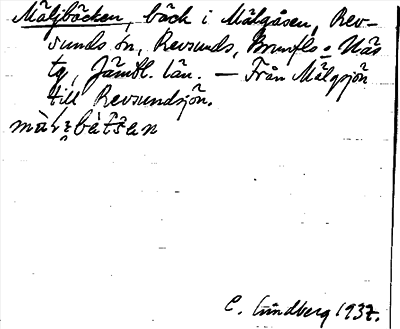 Mäljbäcken, bäck i Mälgåsen, Rev-
sunds sn, Revsunds, Brunflo o Näs
tg, Jämtl. län. — Från Mälgsjön
till Revsundsjön.
C. Lundberg 1937.